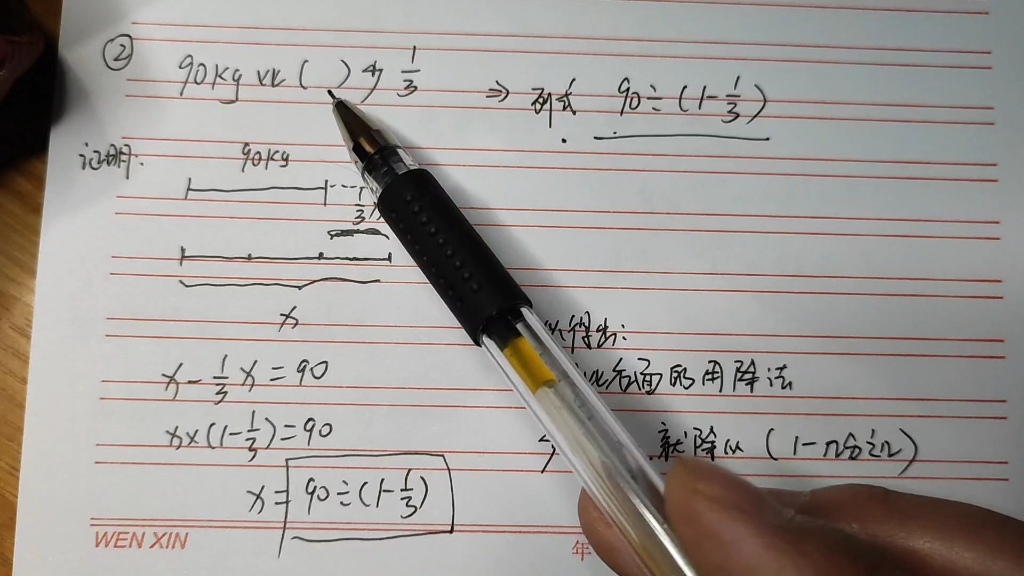 ② 90kg 比 ( ) 少 1/3 ⇒ 列式 90÷(1-1/3)
证明:
90kg
1/3
x
x-1/3x=90
x×(1-1/3)=90
x=90÷(1-1/3)
得出:
比后面的用除法
少 就除以(1-几分之几)
WEN XIN
年